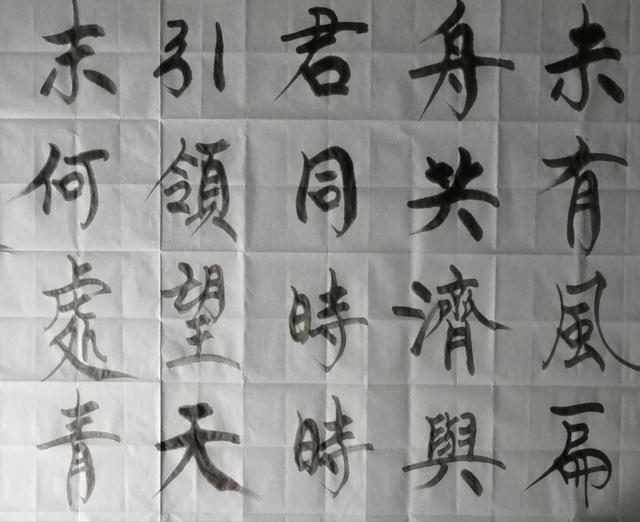 未有風扁
舟共濟與
君同時時
引領望天
末何處青